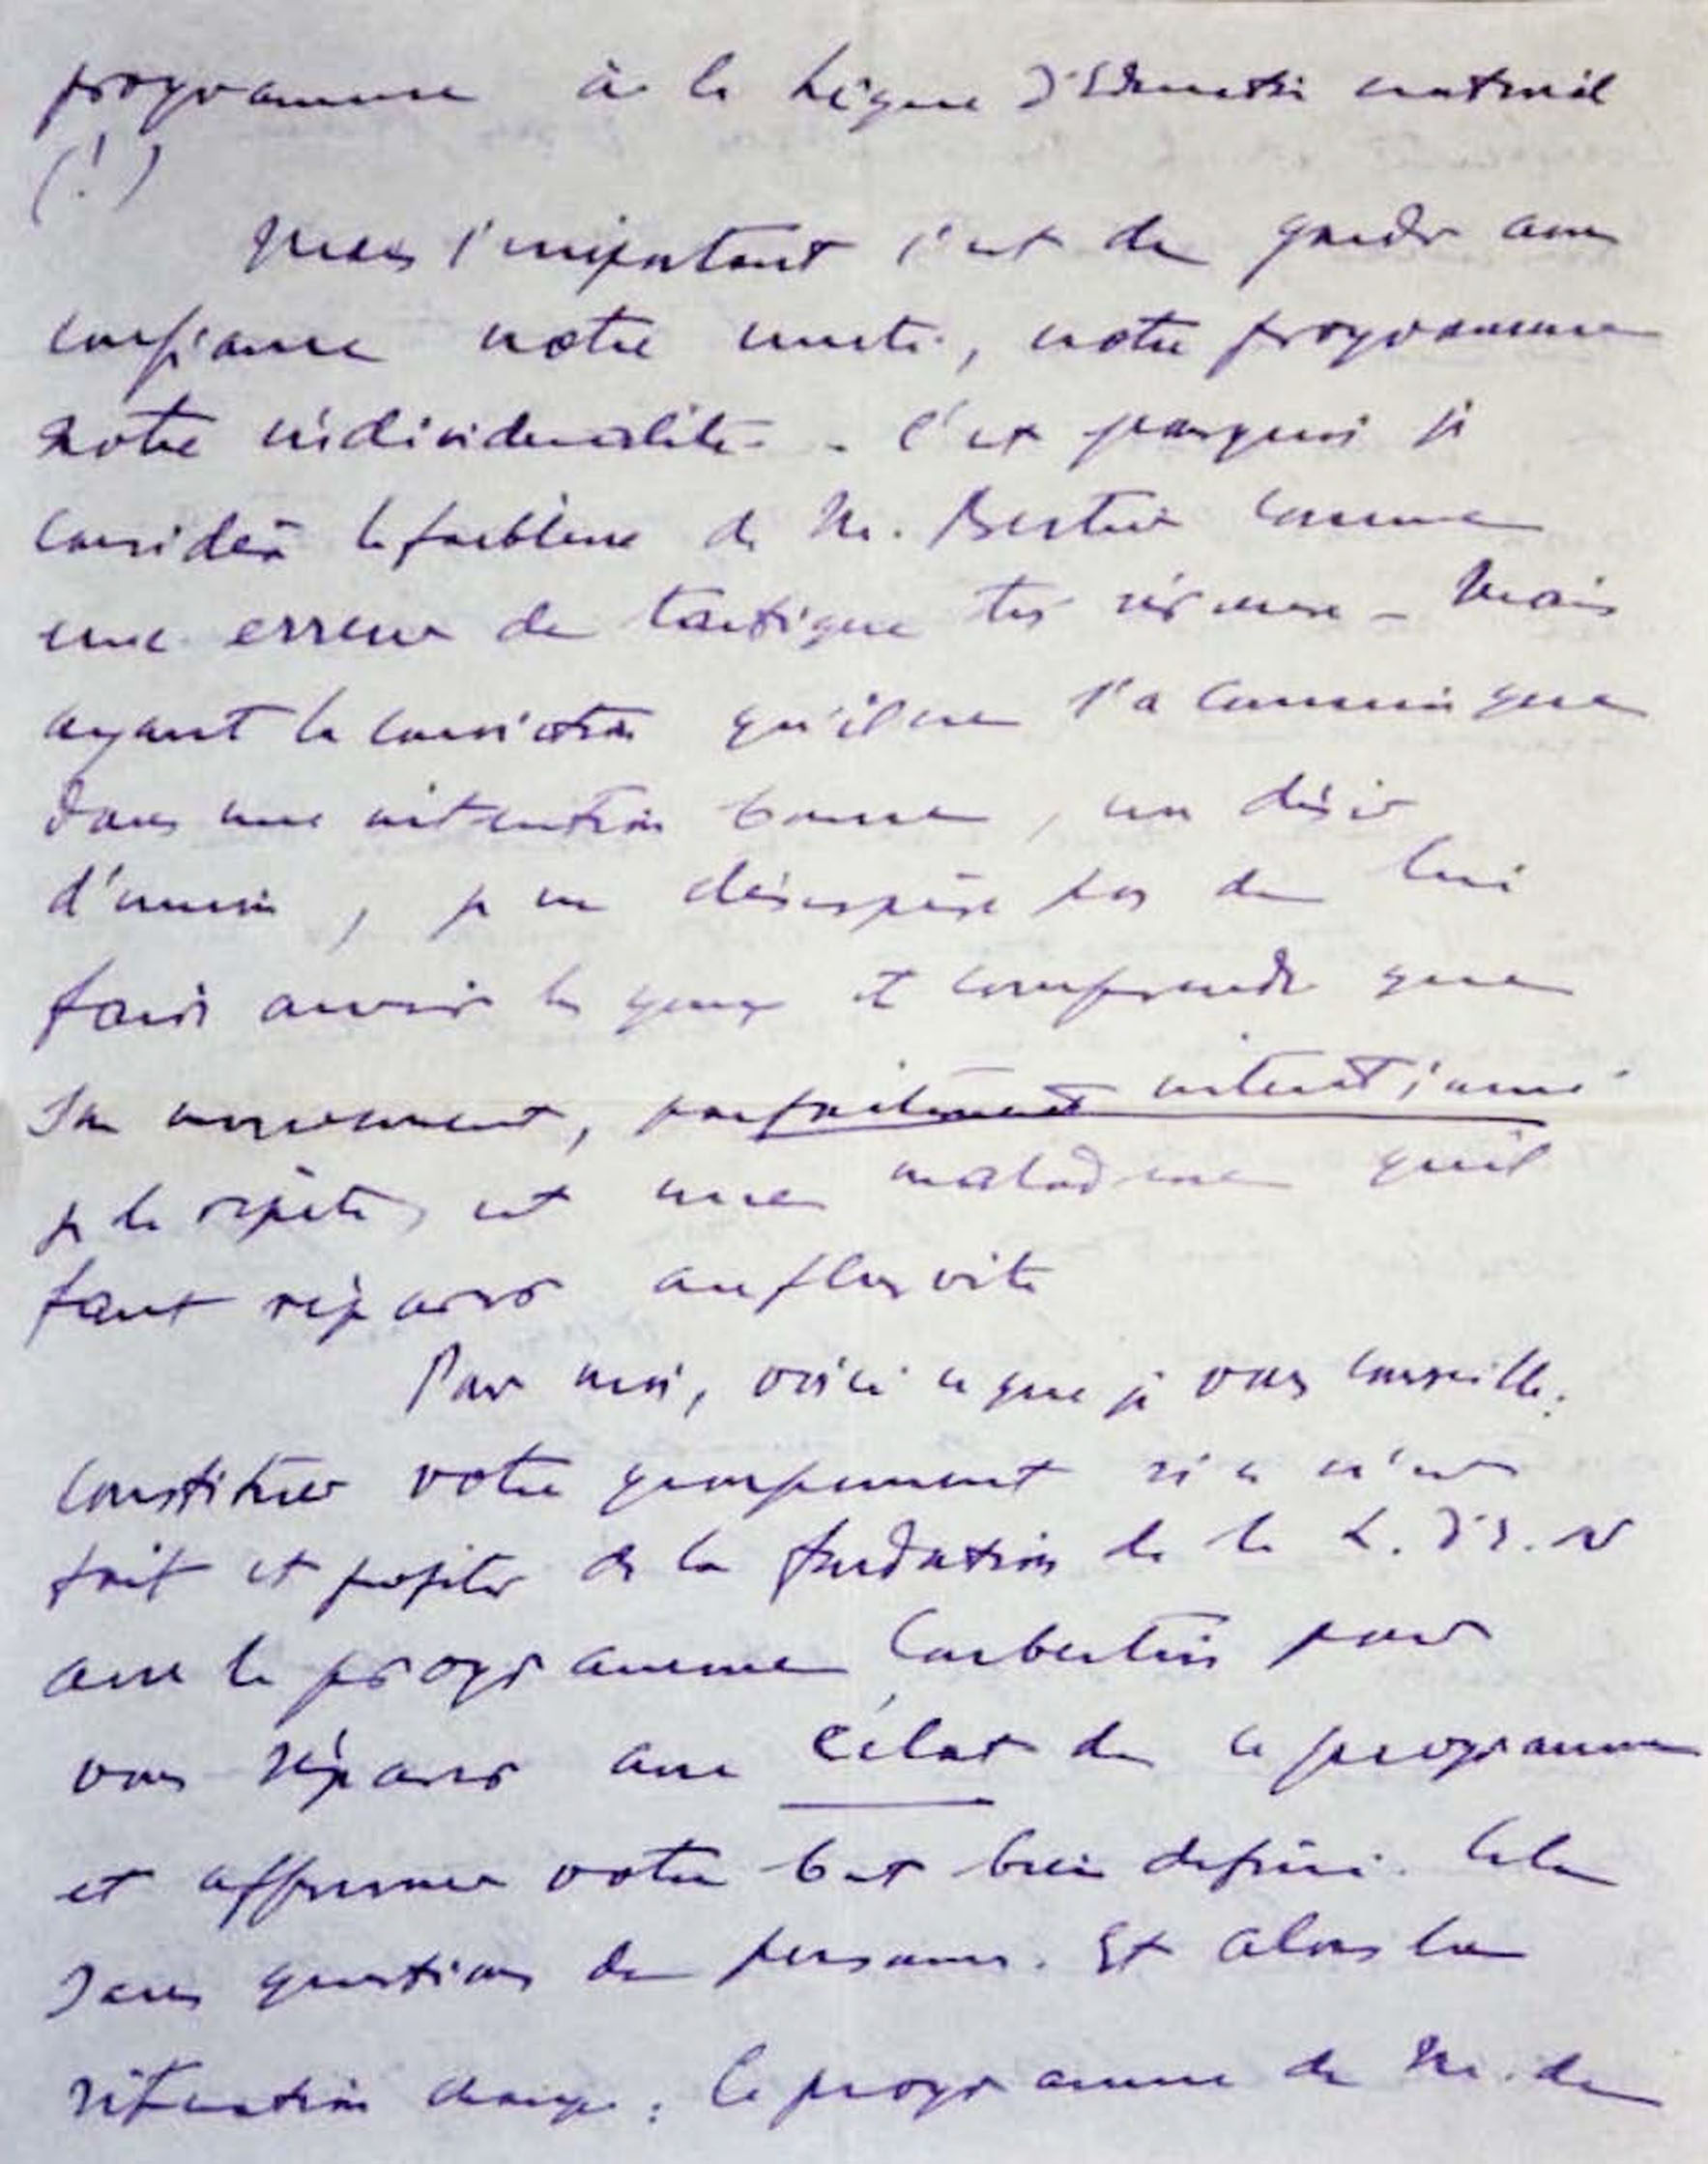 programme à la Ligue d'Education national
(!)
Mais l'important c'est de garder avec
confiance notre unité, notre programme
notre individualité. C'est pourquoi je
considère la faiblesse de M. Bertier comme
une erreur de tactique très sérieuse - Mais
ayant la conviction qu'il ne l'a commis que
dans une intention bonne, un désir
d'union, je ne désespère pas de lui
faire ouvrir les yeux et comprendre que
son mouvement, parfaitement intentionné
je le répète, est une maladresse qu'il
faut réparer au plus vite
Pour moi, voici ce que je vous conseille.
Constituer votre groupement si ce n'est
fait et profiter de la fondation de la L.D'E.N
avec le programme Coubertin pour
vous séparer avec éclat de ce programme
et affirmer votre but bien défini. Cela
sans questions de personnes. Et alors la
situation change : le programme de M. de